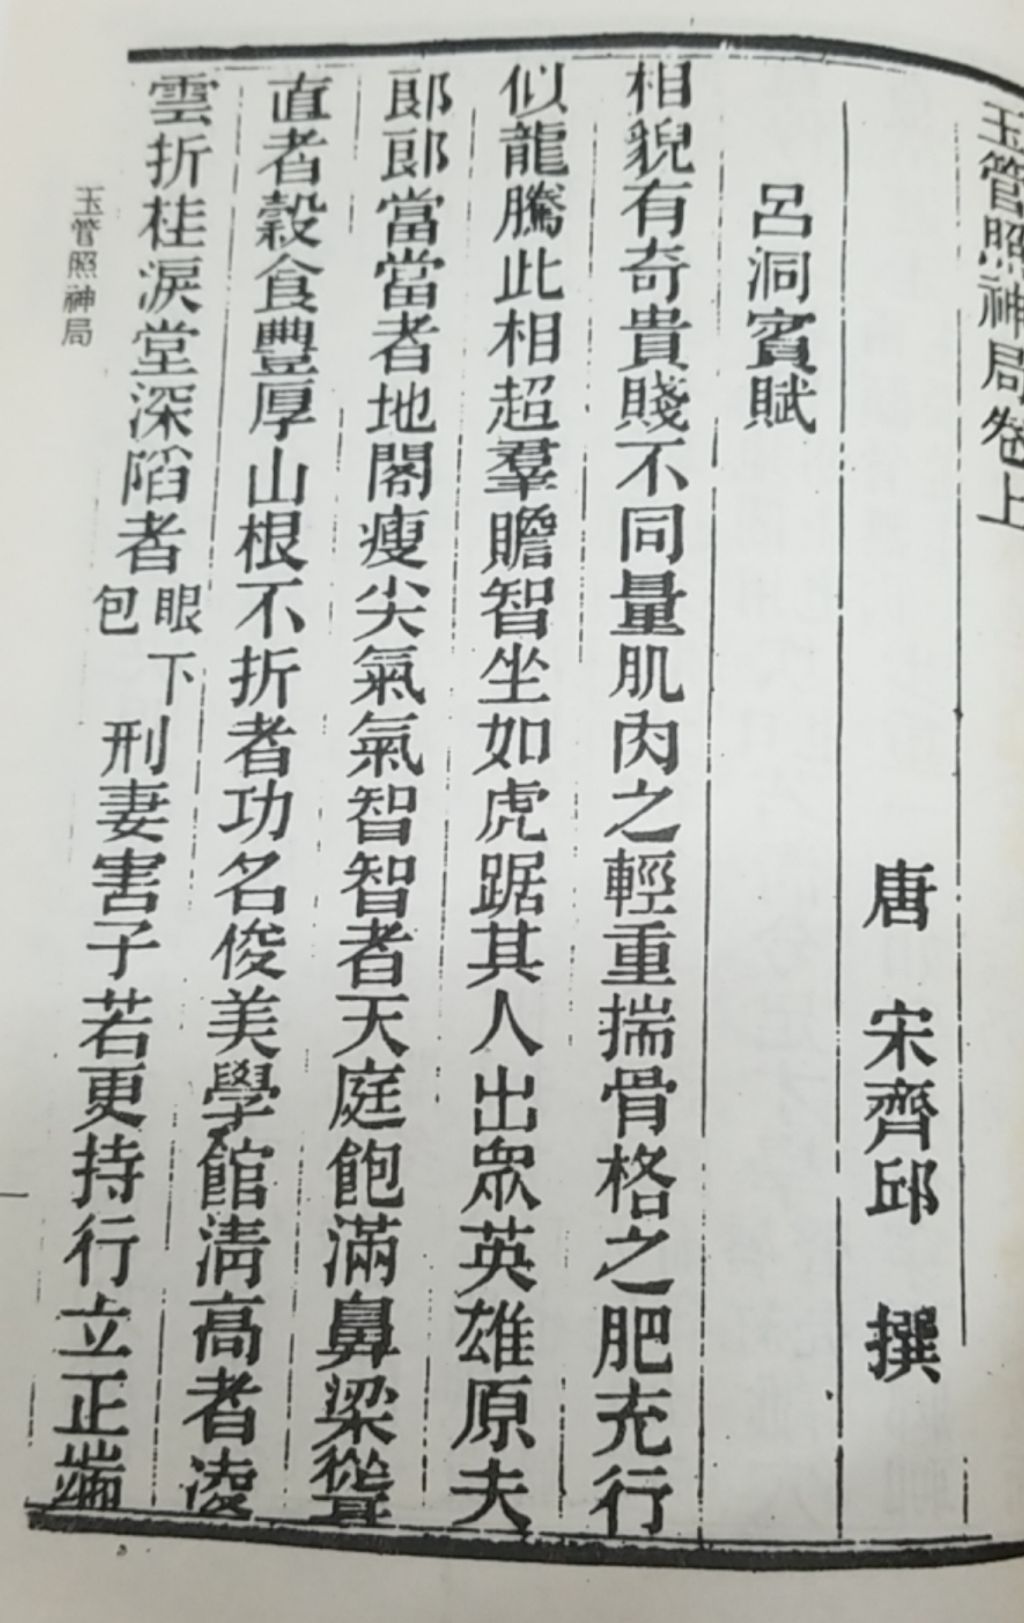 玉管照神局卷上
唐 宋齊邱 撰
呂洞賓賦
相貌有奇貴賤不同量肌肉之輕重揣骨格之肥充行
似龍騰此相超羣贍智坐如虎踞其人出眾英雄原夫
郎郎當當者地閣瘦尖氣氣智智者天庭飽滿鼻梁聳
直者穀食豐厚山根不折者功名俊美學館清高者凌
雲折桂淚堂深陷者眼下包刑妻害子若更持行立正端
玉管照神局
一